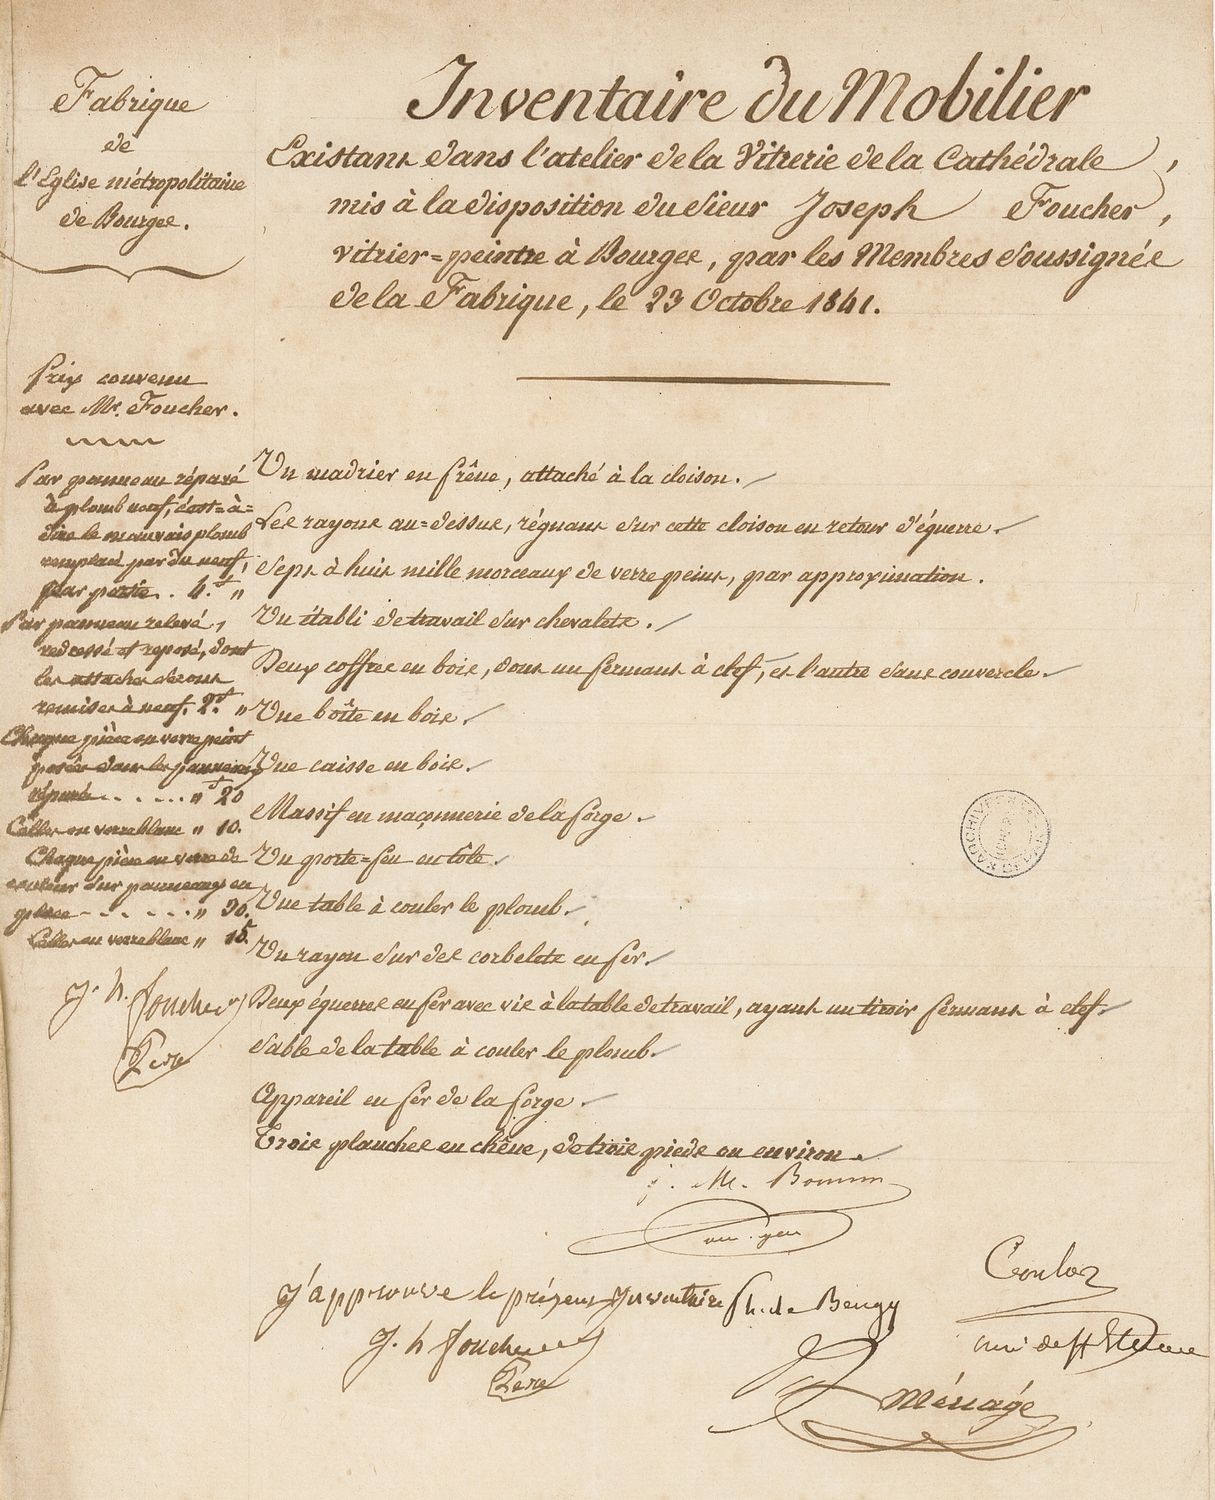 Fabrique
de
l'Eglise métropolitaine
de Bourges.
Inventaire du Mobilier
Existant dans l'atelier de la Vitrerie de la Cathédrale,
mis à la disposition du sieur Joseph Foucher,
vitrier=peintre à Bourges, par les Membres soussignés
de la Fabrique, le 23 Octobre 1841.
Prix convenu
avec Mr. Foucher.
Par panneau réparé
à plomb neuf, c'est=à=
dire le mauvais plomb
remplacé par du neuf,
par . 4.f "
Par panneau relevé,
redressé et reposé, dont
les attaches seront
remises à neuf. 2.f "
Chaque pièce en verre peint
posée dans les panneaux
réparés . . . . . " f 20
Celles en verre blanc " 10.
Chaque pièce en verre de
couleur sur panneaux en
place - . . - . . " 30.
Celles en verre blanc " 15.
J. h. foucher
Pere
Un madrier en frêne, attaché à la cloison.
Les rayons au=dessus, régnant sur cette cloison en retour d'équerre.
Sept à huit mille morceaux de verre peint, par approximation.
Un établi de travail sur chevalets.
Deux coffres en bois, dont un fermant à clef, et l'autre sans couvercle.
Une boîte en bois.
Une caisse en bois.
Massif en maçonnerie de la forge.
Un porte=feu en tôle.
Une table à couler le plomb.
Un rayon sur des corbelets en fer.
Deux équerres en fer avec vis à la table de travail, ayant un tiroir fermant à clef.
Sable de la table à couler le plomb.
Appareil en fer de la forge.
Trois planches en chêne, de trois pieds ou environ.
M.
J'approuve le présent Inventaire
J. h foucher
Pere
de Bengy
curé de St Etienne
Ménagé